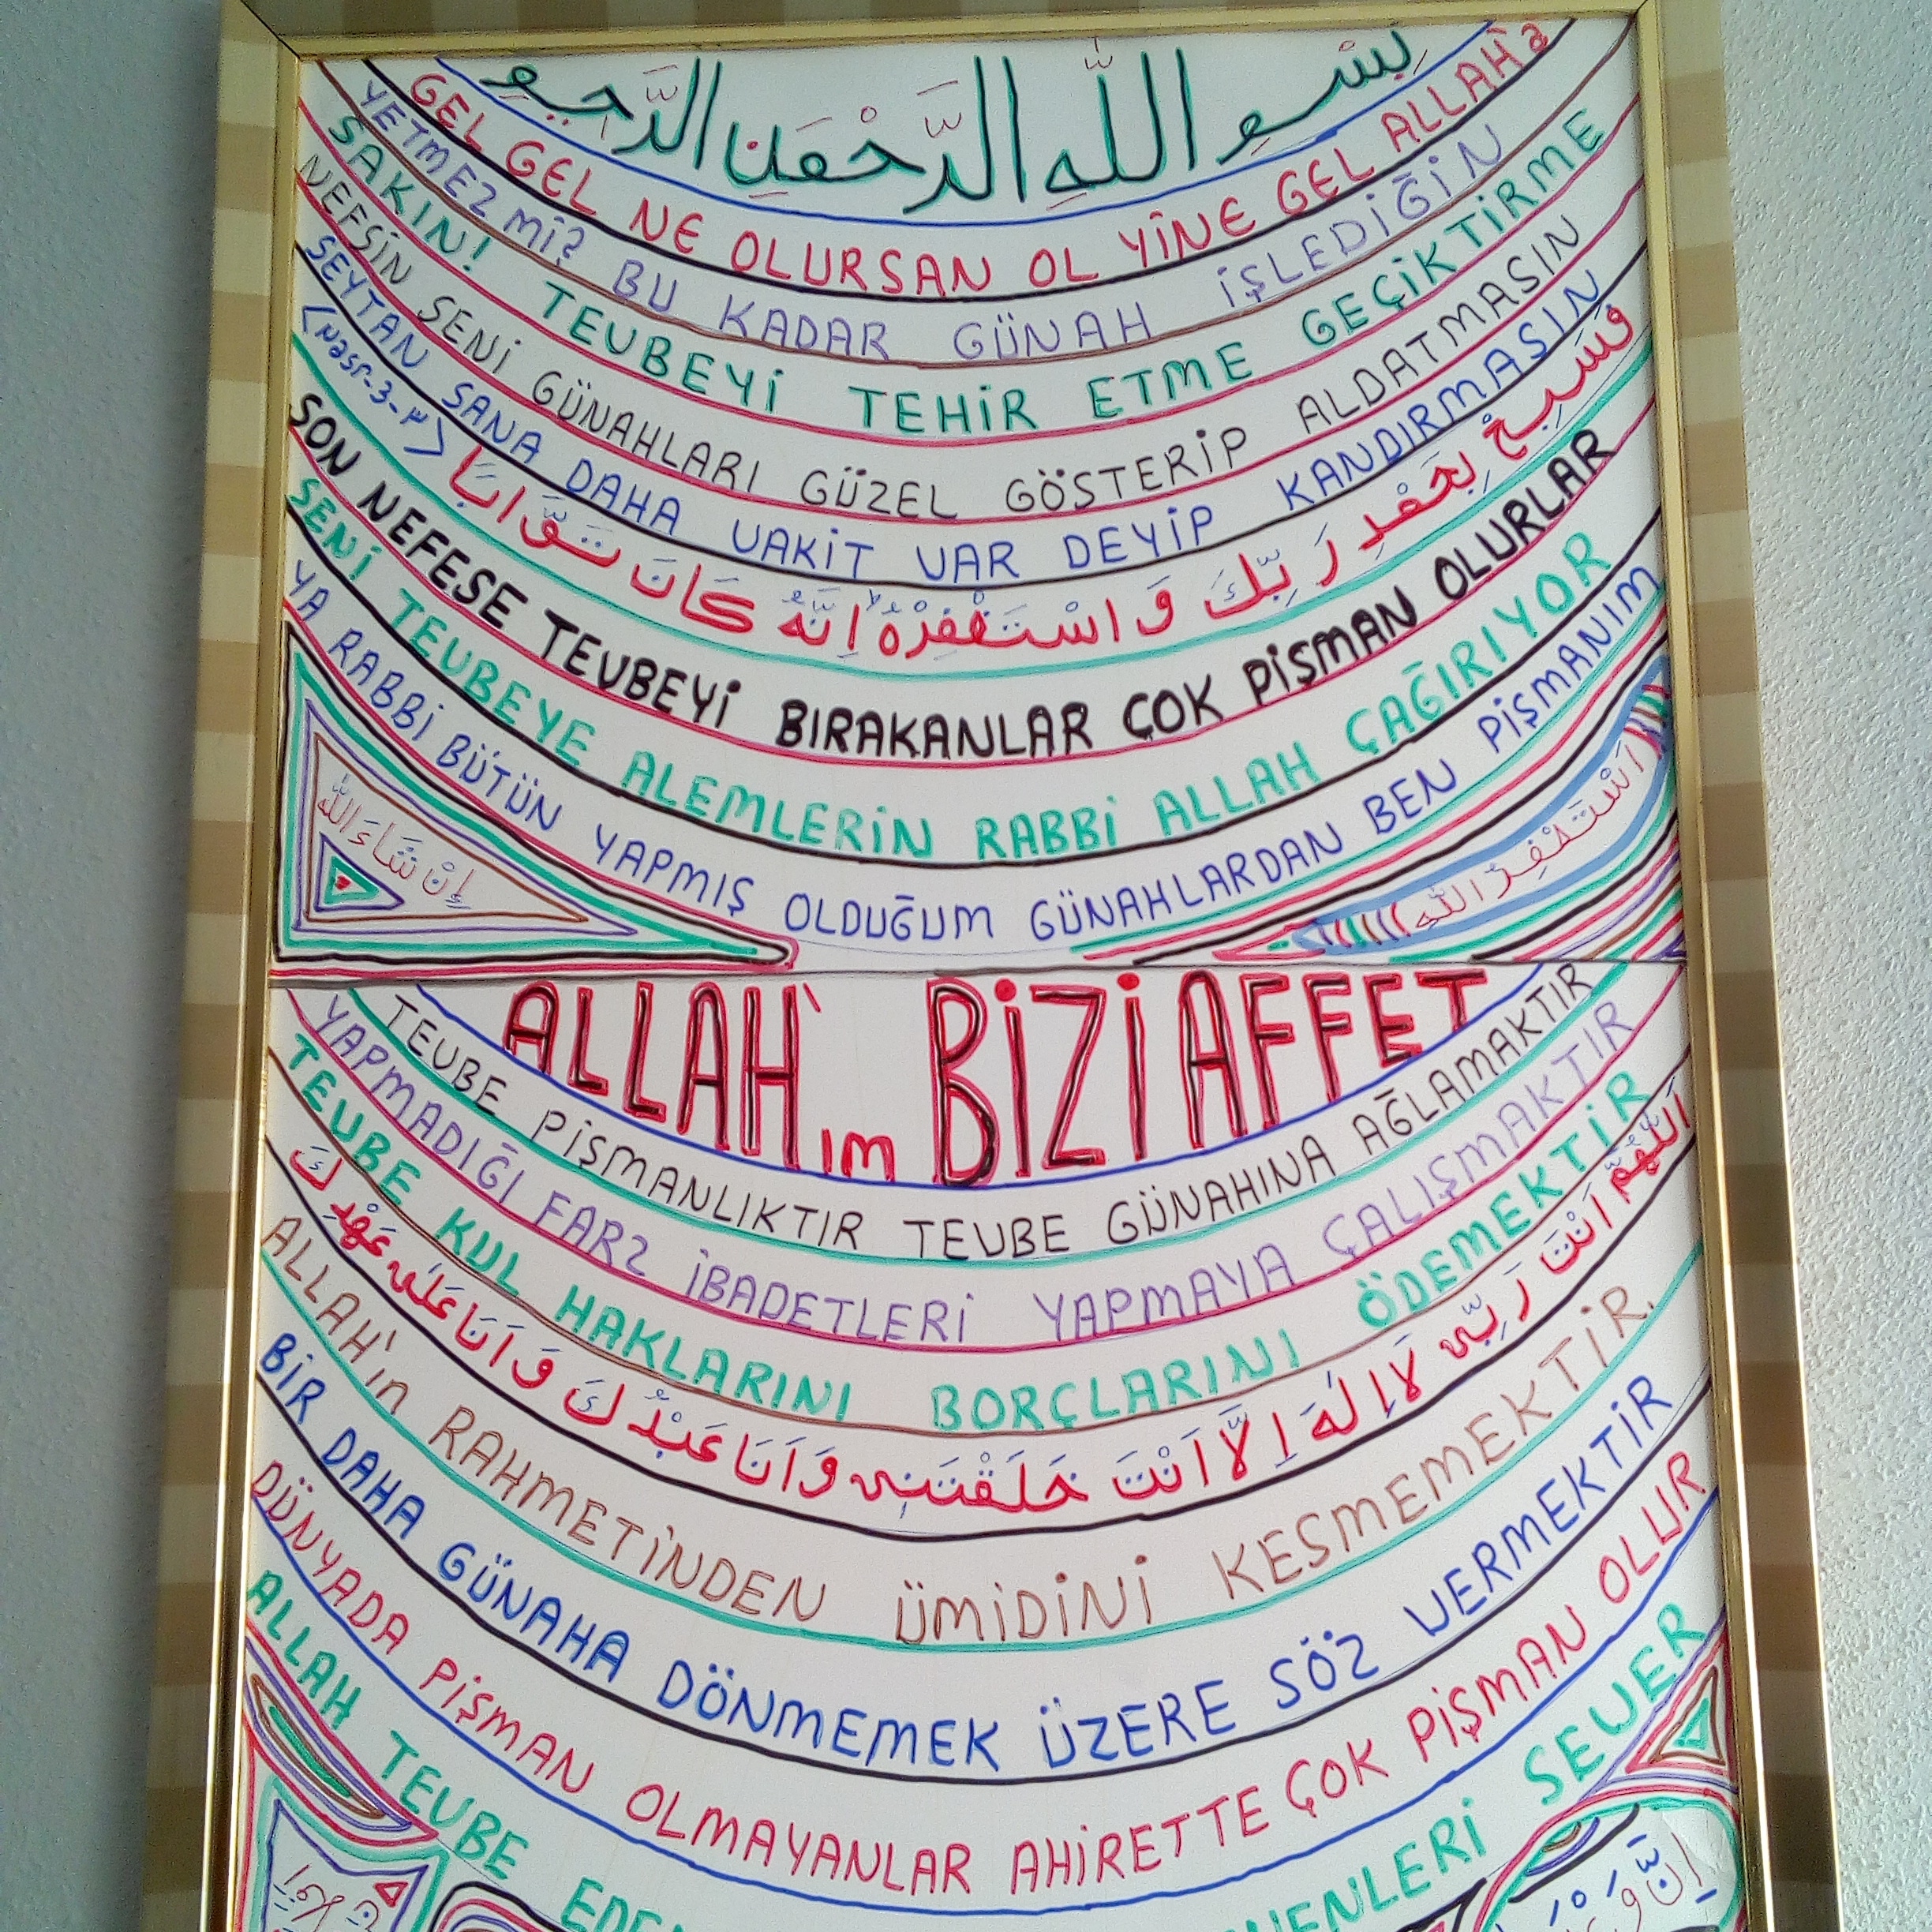 بِسْمِ اللّٰهِ الرَّحْمٰنِ الرَّحِيمِ
GEL GEL NE OLURSAN OL YİNE GEL ALLAH'a
YETMEZ Mİ? BU KADAR GÜNAH İŞLEDİĞİN
SAKIN! TEVBEYİ TEHİR ETME GEÇİKTİRME
NEFSİN SENİ GÜNAHLARI GÜZEL GÖSTERİP ALDATMASIN
ŞEYTAN SANA DAHA VAKİT VAR DEYİP KANDIRMASIN
فَسَبِّحْ بِحَمْدِ رَبِّكَ وَاسْتَغْفِرْهُ اِنَّهُ كَانَ تَوَّابًا (Nasr-3-٣)
SON NEFESE TEVBEYİ BIRAKANLAR ÇOK PİŞMAN OLURLAR
SENİ TEVBEYE ALEMLERİN RABBİ ALLAH ÇAĞIRIYOR
YA RABBİ BÜTÜN YAPMIŞ OLDUĞUM GÜNAHLARDAN BEN PİŞMANIM
اِنْ شَاءَ اللّٰه
اَسْتَغْفِرُ اللّٰه
ALLAH'ım BİZİ AFFET
TEVBE PİŞMANLIKTIR TEVBE GÜNAHINA AĞLAMAKTIR
YAPMADIĞI FARZ İBADETLERİ YAPMAYA ÇALIŞMAKTIR
TEVBE KUL HAKLARINI BORÇLARINI ÖDEMEKTİR
اَللّٰهُمَّ اَنْتَ رَبِّى لَا اِلٰهَ اِلَّا اَنْتَ خَلَقْتَنِى وَاَنَا عَبْدُكَ وَاَنَا عَلٰى عَهْدِكَ
ALLAH'ın RAHMETİNDEN ÜMİDİNİ KESMEMEKTİR.
BİR DAHA GÜNAHA DÖNMEMEK ÜZERE SÖZ VERMEKTİR
DÜNYADA PİŞMAN OLMAYANLAR AHİRETTE ÇOK PİŞMAN OLUR
ALLAH TEVBE SEVER